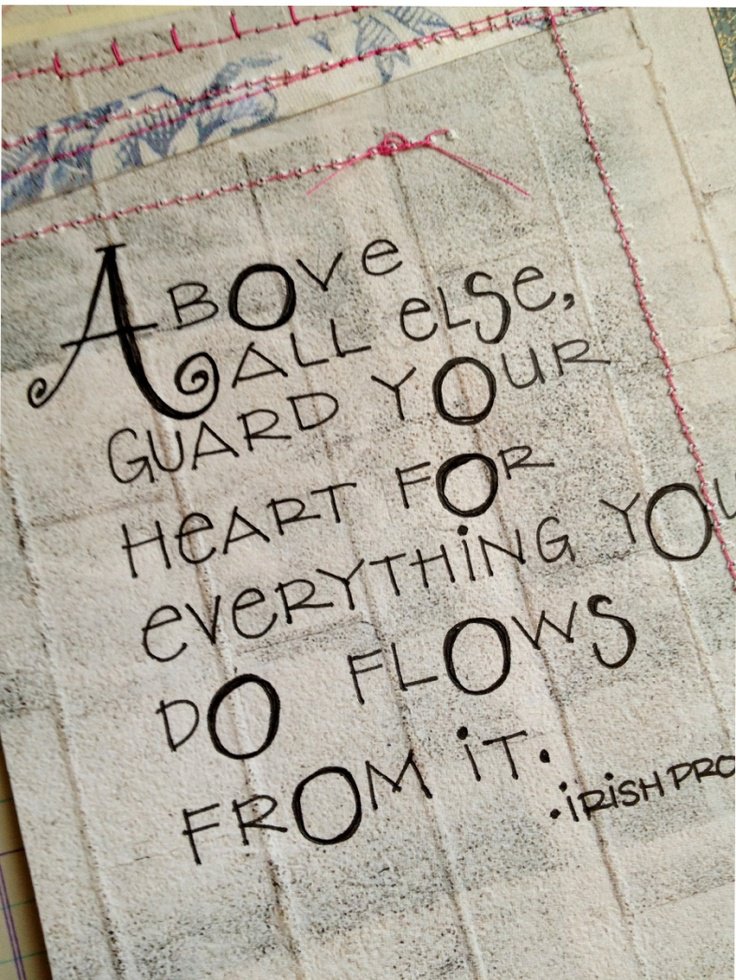 Above
ALL eLSe,
GUARD YOUR
HeART FOR
eVeRYTHiNG YOU
DO FLOWS
FROM iT.
.iRiSH PRO